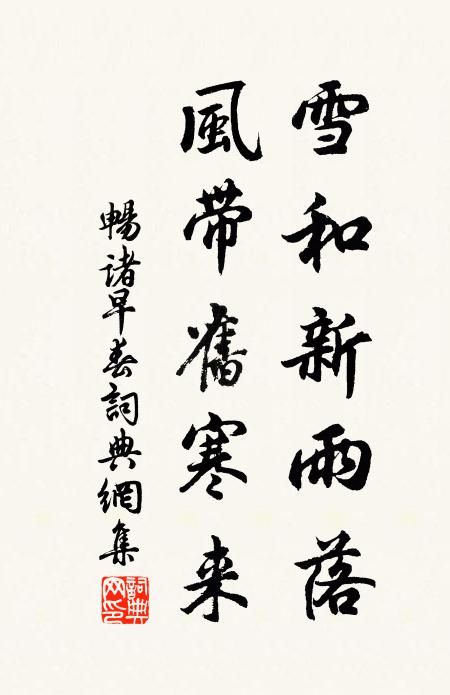 雪和新雨落
風带舊寒来
暢諸早春詞典網集
詞典网印